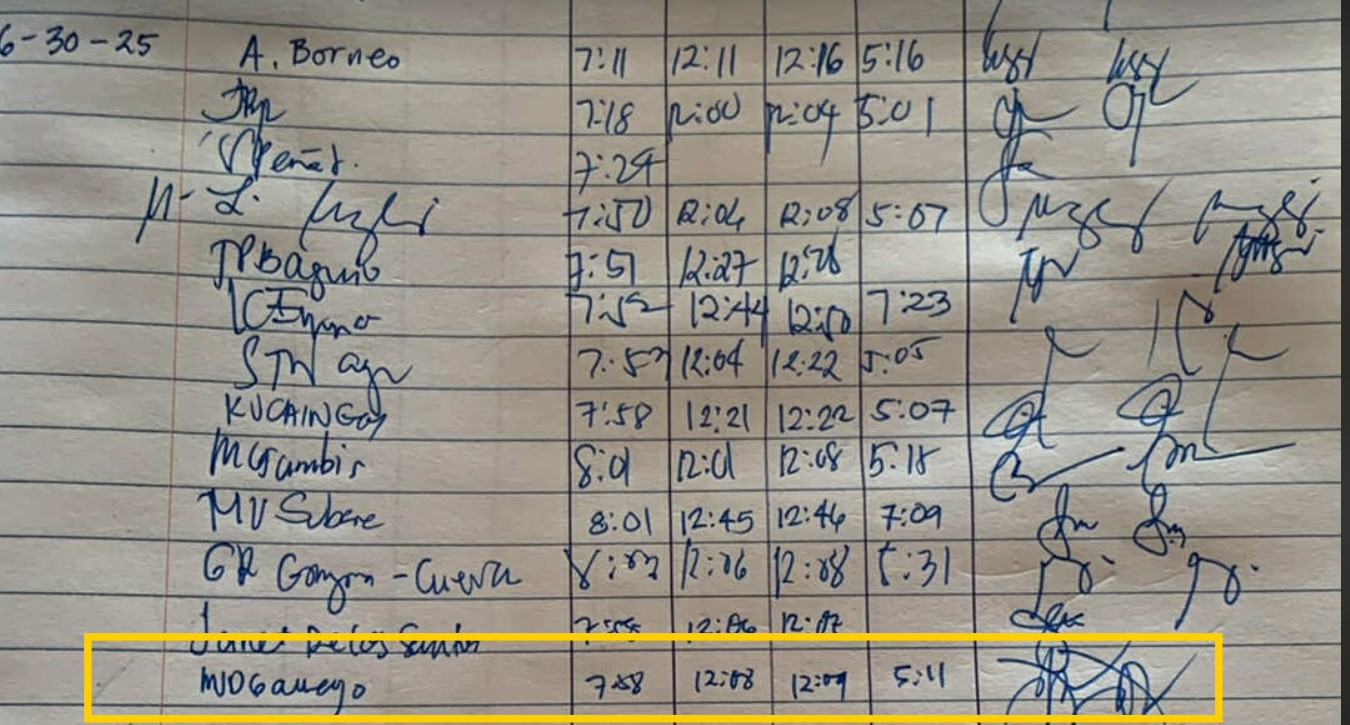 6-30-25 A. Borneo 7:11 12:11 12:16 5:16
7:18 12:00 12:04 5:01
7:24
7:50 12:04 12:08 5:07
JPBaguio 7:51 12:27 12:28
7:52 12:44 12:50 7:23
STN 7:57 12:04 12:22 5:05
KUCAINGOY 7:58 12:21 12:22 5:07
MGambis 8:01 12:01 12:08 5:18
MV Subere 8:01 12:45 12:46 7:09
GR Gonzon-Cueva 8:03 12:06 12:08 5:31
Delos Santos 12:06 12:07
MDGallego 7:58 12:08 12:09 5:11